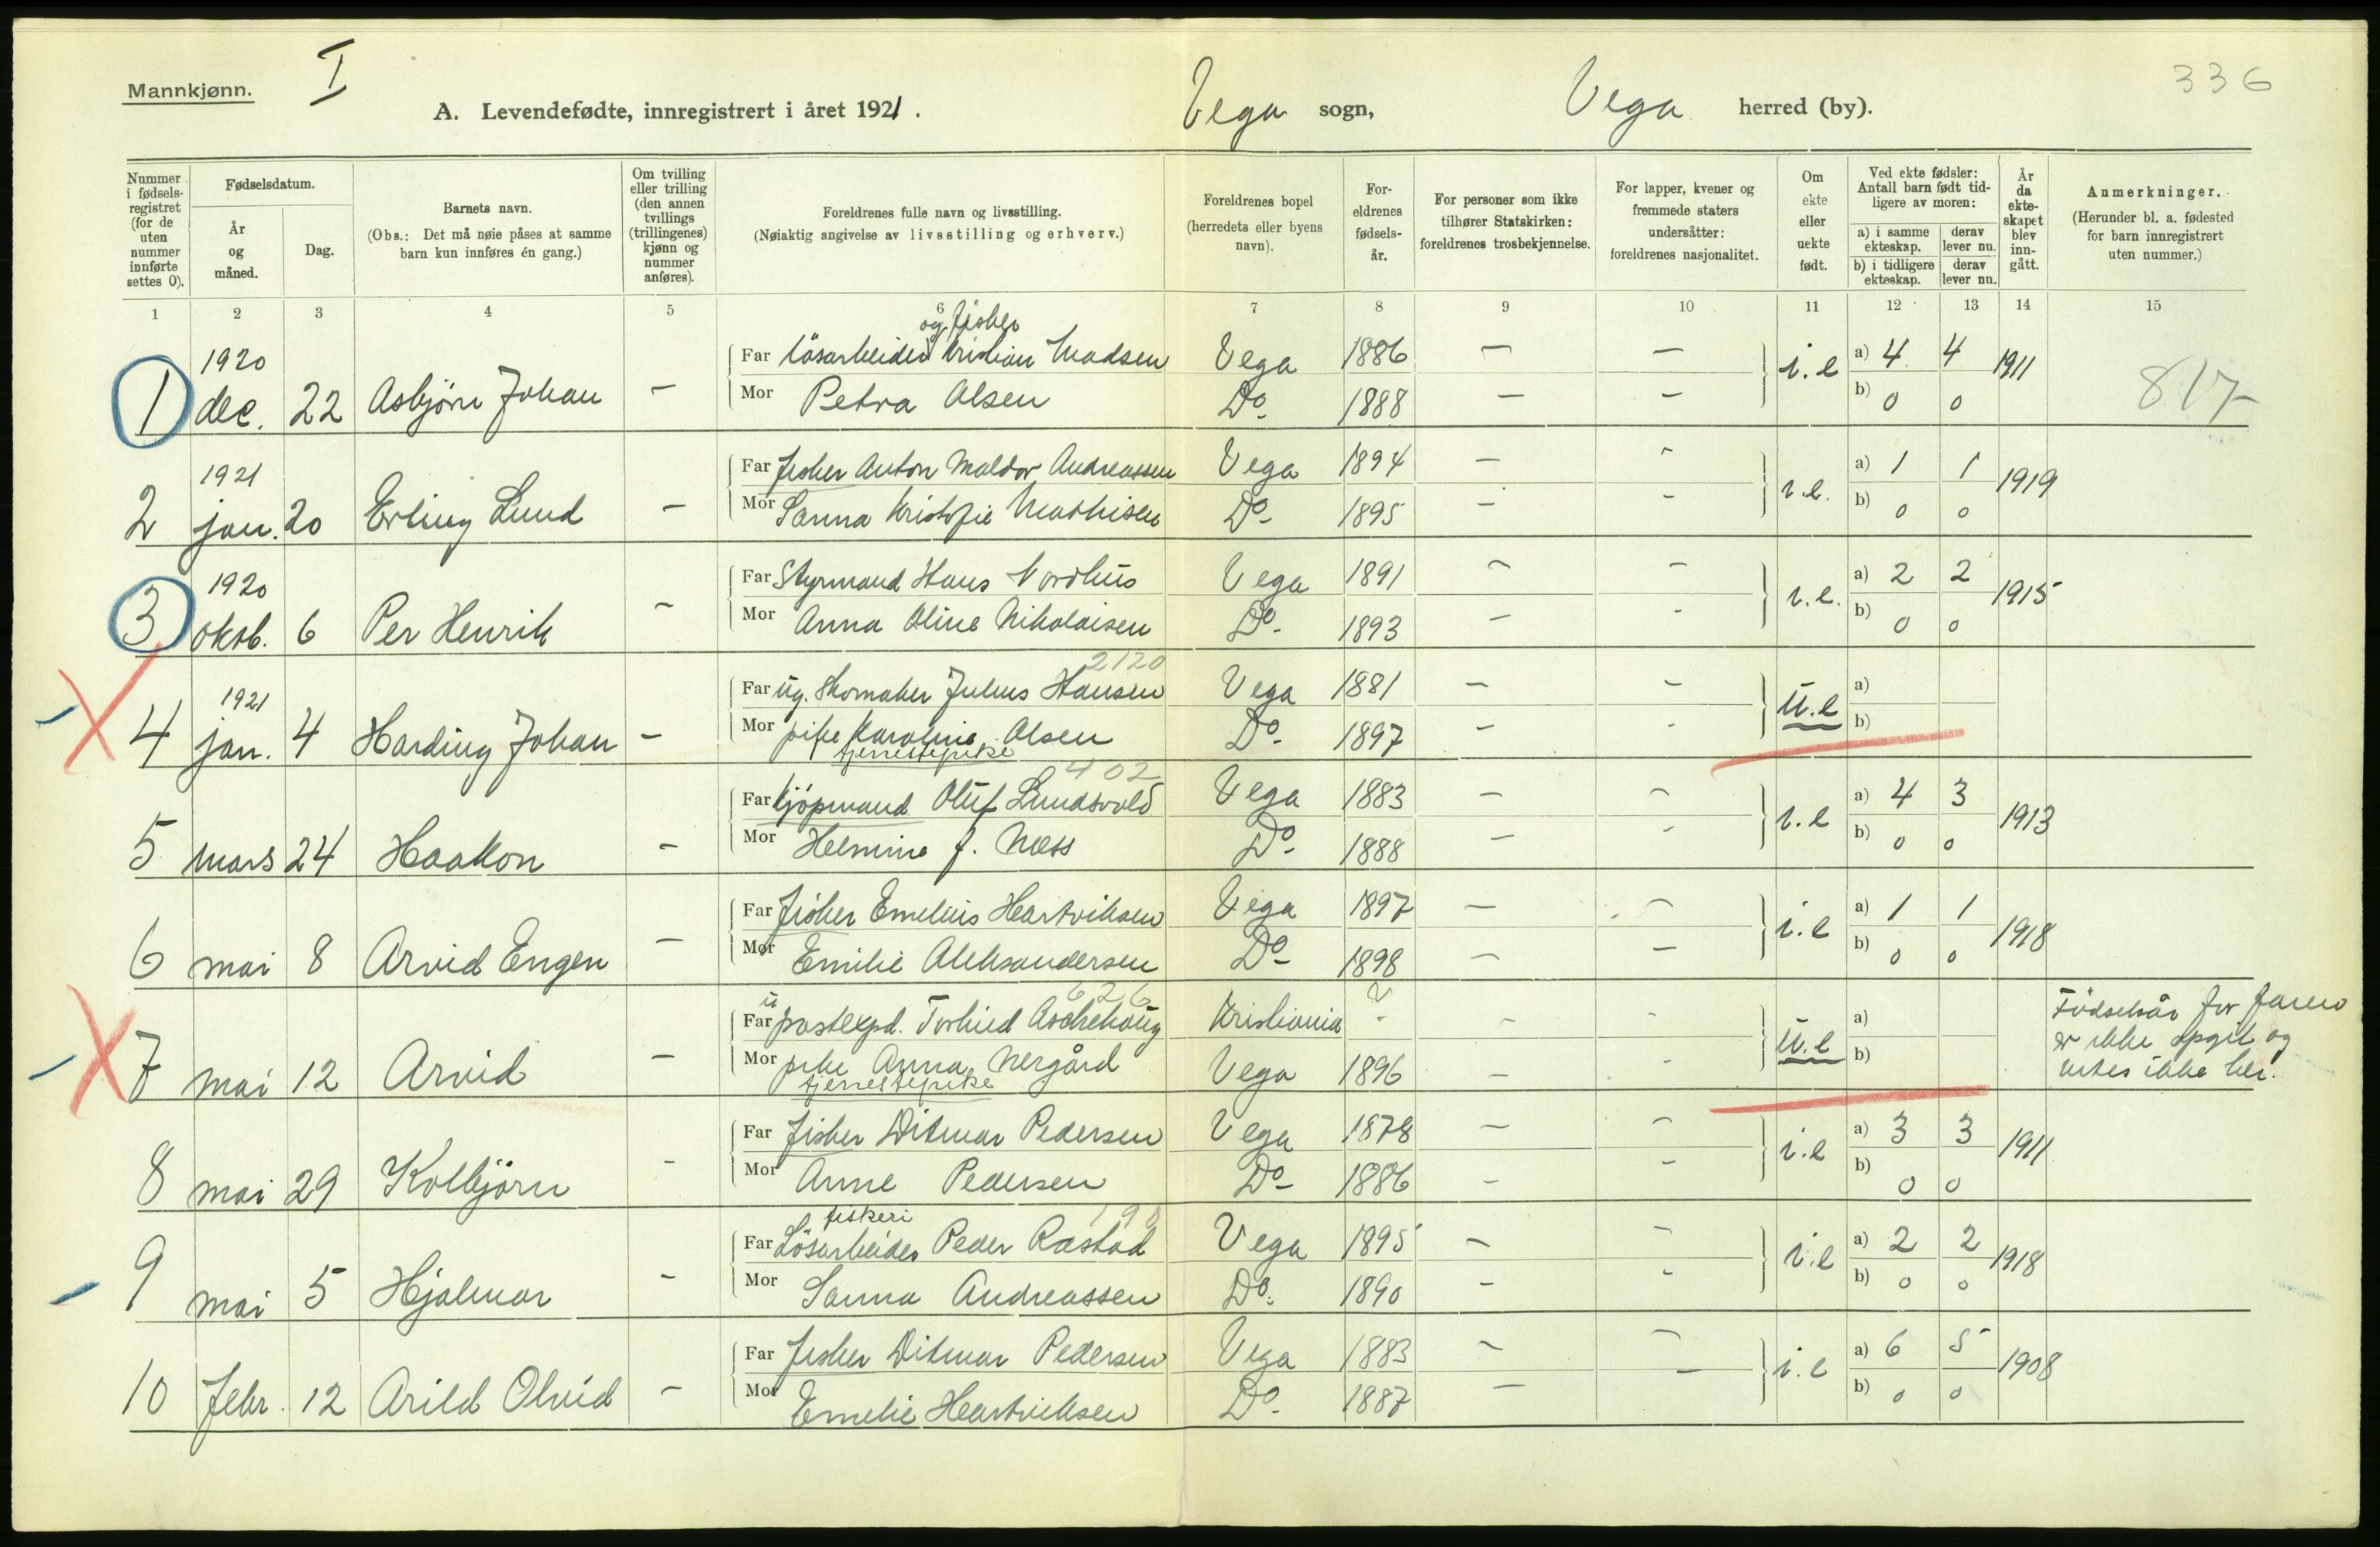 Mannkjønn.
I
336
A. Levendefødte, innregistrert i året 1921.
Vega sogn,
Vega herred (by).
Nummer i fødselsregistret (for de uten nummer innførte settes 0).
Fødselsdatum.
År og måned.
Dag.
Barnets navn.
(Obs.: Det må nøie påses at samme barn kun innføres én gang.)
Om tvilling eller trilling (den annen tvillings (trillingenes) kjønn og nummer anføres).
Foreldrenes fulle navn og livsstilling.
(Nøiaktig angivelse av livsstilling og erhverv.)
Foreldrenes bopel (herredets eller byens navn).
Foreldrenes fødselsår.
For personer som ikke tilhører Statskirken: foreldrenes trosbekjennelse.
For lapper, kvener og fremmede staters undersåtter: foreldrenes nasjonalitet.
Om ekte eller uekte født.
Ved ekte fødsler: Antall barn født tidligere av moren:
a) i samme ekteskap. derav lever nu.
b) i tidligere ekteskap. derav lever nu.
År da ekteskapet blev inngått.
Anmerkninger.
(Herunder bl. a. fødested for barn innregistrert uten nummer.)
1 2 3 4 5 6 7 8 9 10 11 12 13 14 15
og fisker
1920 Far løsarbeider Kristian Madsen Vega 1886 — — i.e a) 4 4 1911
1 dec. 22 Asbjørn Johan — Mor Petra Olsen Do 1888 — — b) 0 0 817
1921 Far fisker Anton Maldor Andreassen Vega 1894 — — i.e. a) 1 1 1919
2 jan. 20 Erling Lund — Mor Sanna Kristofie Mathisen Do 1895 — — b) 0 0
1920 Far Styrmand Hans Nordhus Vega 1891 — — i.e. a) 2 2 1915
3 oktb. 6 Per Henrik — Mor Anna Oline Nikolaisen Do 1893 — — b) 0 0
2120
1921 Far ug. Skomaker Julius Hansen Vega 1881 — — u.e a)
4 jan. 4 Harding Johan — Mor pike Karoline Olsen Do 1897 — — b)
tjenestepike
402
Far kjøpmand Oluf Lundsvold Vega 1883 — — i.e a) 4 3 1913
5 mars 24 Haakon — Mor Helmine f. Næss Do 1888 — — b) 0 0
Far fisker Emelius Hartviksen Vega 1897 — — i.e a) 1 1 1918
6 mai 8 Arvid Engen — Mor Emilie Aleksandersen Do 1898 — — b) 0 0
626
u
Far postexpd. Aschehoug Kristiania ? - — — u.e a) Fødselsår for faren
er ikke opgit og
7 mai 12 Arvid — Mor pike Anna Nergård Vega 1896 — — b) vites ikke her.
tjenestepike
Far fisker Ditmar Pedersen Vega 1878 — — i.e a) 3 3 1911
8 mai 29 Kolbjørn — Mor Anne Pedersen Do 1886 — — b) 0 0
fiskeri
Far Løsarbeider Peder Rastad Vega 1895 — — i.e a) 2 2 1918
9 mai 5 Hjalmar — Mor Sanna Andreassen Do 1890 — — b) 0 0
Far fisker Ditmar Pedersen Vega 1883 — — i.e a) 6 5 1908
10 febr. 12 Arild Olvid — Mor Emelie Hartviksen Do 1887 — — b) 0 0